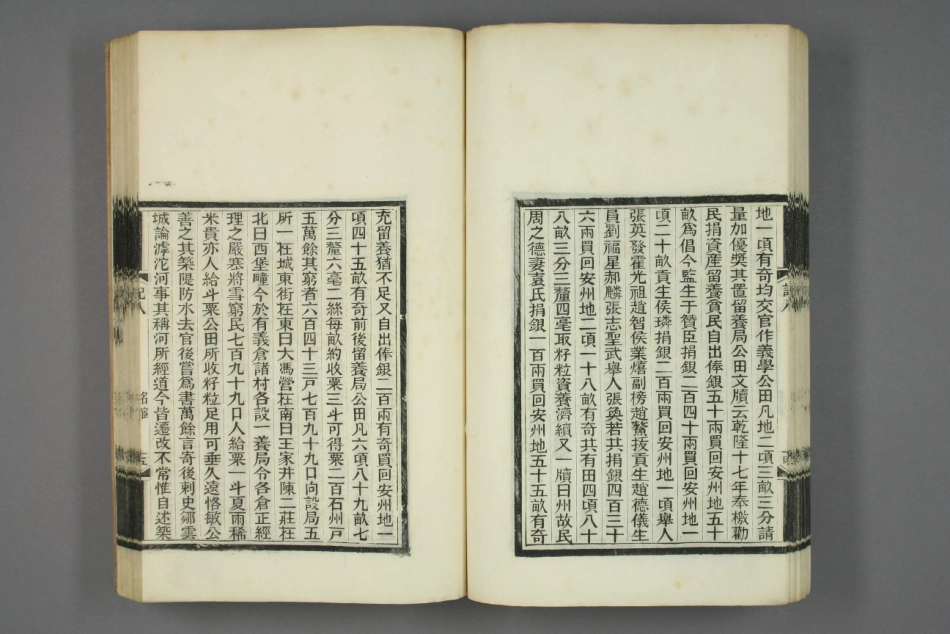 地一項有奇均交官作義學公田凡地二項三畝三分請
量加優獎其置留養局公田文牘云乾隆十七年奉檄勸
民捐資產留養貧民自出俸銀五十兩買回安州地五十
畝爲倡今監生于贊臣捐銀二百四十兩買回安州地一
項二十畝貢生侯璘捐銀二百兩買回安州地一項舉人
張英發霍光祖趙智侯業熺副榜趙鰲拔貢生趙德儀生
員劉福星郝麟張志聖武舉人張奐若共捐銀四百三十
六兩買回安州地二項一十八畝有奇共有田四項八十
八畝三分三釐四毫取籽粒資養濟續又一牘曰州故民
周之德妻袁氏捐銀一百兩買回安州地五十五畝有奇
充留養猶不足又自出俸銀二百兩有奇買回安州地一
項四十五畝有奇前後留養局公田凡六項八十九畝七
分三釐六毫二絲每畝約收粟三斗可得粟二百石州戸
五萬餘其窮者六百四十三戸七百九十九口向設局五
所一在城東街在東曰大馮營在南曰王家井陳二莊在
北曰西堡疃今於有義倉諸村各設一養局令各倉正經
理之嚴寒將雪窮民七百九十九口人給粟一斗夏雨稀
米貴亦人給斗粟公田所收籽粒足用可垂久遠恪敏公
善之其築隄防水去官後嘗爲書萬餘言寄後刺史鄒雲
城論滹沱河事其稱河所經道今皆遷改不常惟自述築